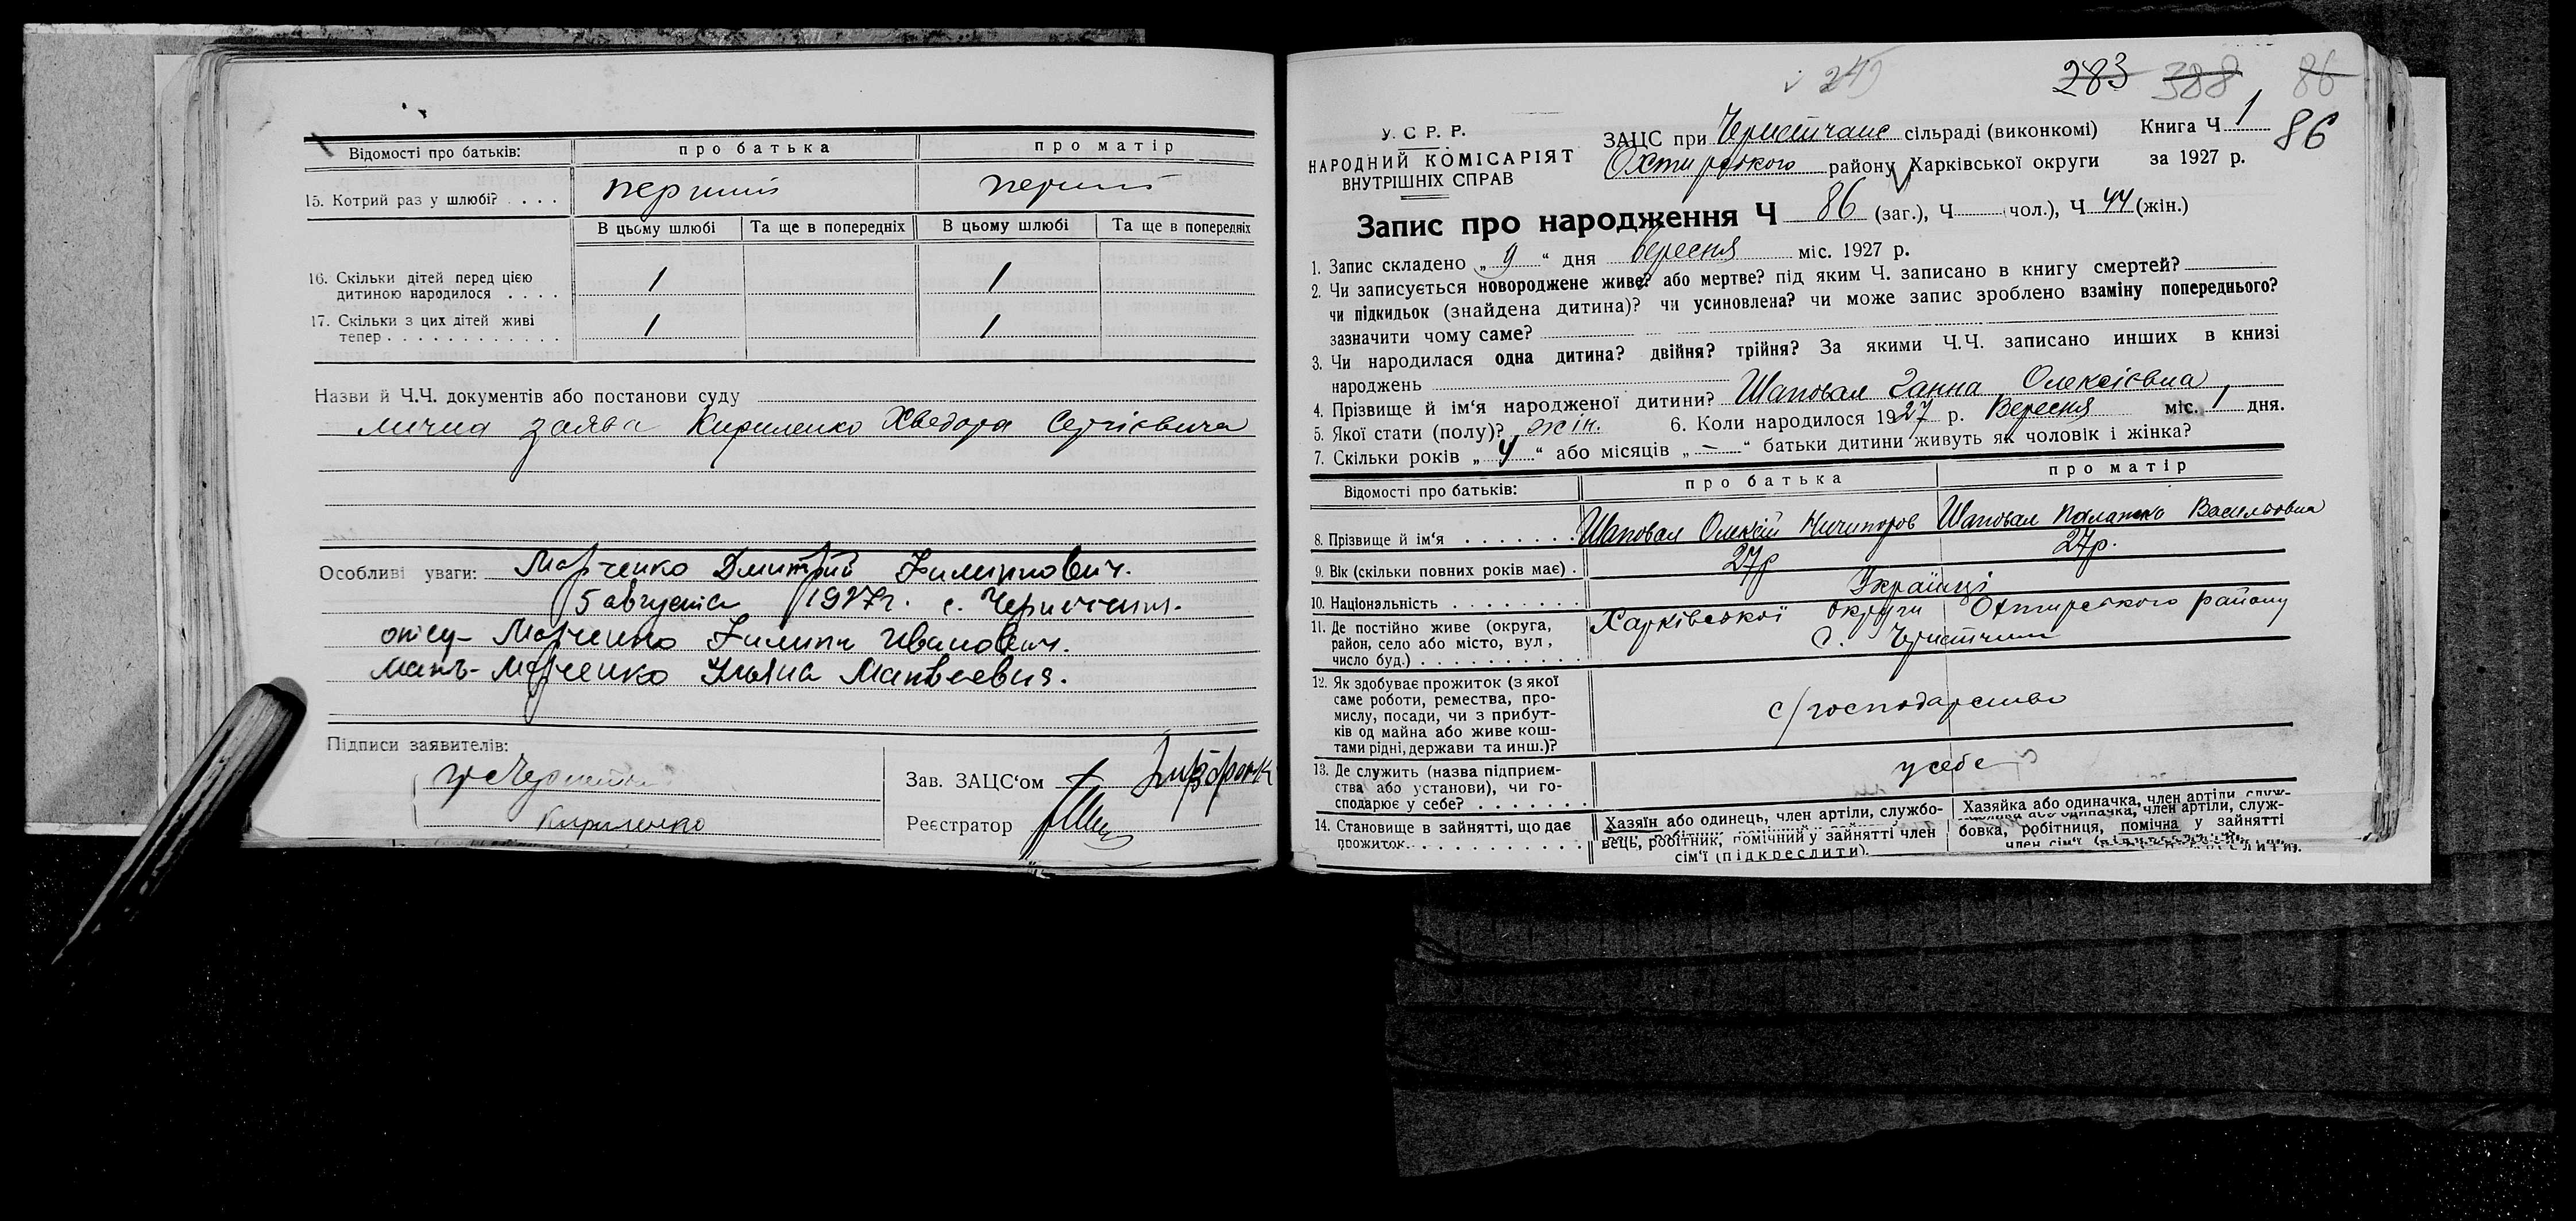 Відомості про батьків: про батька про матір
15. Котрий раз у шлюбі? . . . . перший перший
В цьому шлюбі Та ще в попередніх В цьому шлюбі Та ще в попередніх
16. Скільки дітей перед цією
дитиною народилося . . . . 1 1
17. Скільки з цих дітей живі
тепер . . . . . . . . . . . . 1 1
Назви й Ч.Ч. документів або постанови суду
лична заява Кириленко Хведора Сергієвича
Особливі уваги: Марченко Дмитрий Филиппович.
5 августа 1927г. с.
отец - Марченко Филипп Иванович.
мать - Марченко Ульяна Матвеевна.
Підписи заявителів:
Кириленко
Зав. ЗАЦС‘ом
Реєстратор
249
283 388 86
86
У. С Р. Р.
НАРОДНИЙ КОМІСАРІЯТ
ВНУТРІШНІХ СПРАВ
ЗАЦС при сільраді (виконкомі) Книга Ч 1
Охтирського району Харківської округи за 1927 р.
Запис про народження Ч 86 (заг.), Ч чол.), Ч 44 (жін.)
1. Запис складено „ 9 “ дня вересня міс. 1927 р.
2. Чи записується новороджене живе? або мертве? під яким Ч. записано в книгу смертей?
чи підкидьок (знайдена дитина)? чи усиновлена? чи може запис зроблено взаміну попереднього?
зазначити чому саме?
3. Чи народилася одна дитина? двійня? трійня? За якими Ч.Ч. записано инших в книзі
народжень
4. Прізвище й ім‘я народженої дитини? Шаповал Ганна Олексієвна
5. Якої стати (полу)? жін. 6. Коли народилося 1927 р. Вересня міс. 1 дня.
7. Скільки років „ 4 “ або місяців „ – “ батьки дитини живуть як чоловік і жінка?
Відомості про батьків: про батька про матір
8. Прізвище й ім‘я . . . . . . . Шаповал Олексій Ничипоров Шаповал Палажка Васильовна
9. Вік (скільки повних років має) . 27р 27р.
10. Національність . . . . . . . . Українці
11. Де постійно живе (округа, Харківської округи Охтирського району
район, село або місто, вул., с.
число буд.) . . . . . . . . . . .
12. Як здобуває прожиток (з якої
саме роботи, ремества, про-
мислу, посади, чи з прибут- с/господарство
ків од майна або живе кош-
тами рідні, держави та инш.)?
13. Де служить (назва підприєм- у себе
ства або установи), чи го-
сподарює у себе? . . . . . . .
14. Становище в зайнятті, що дає
прожиток. . . . . . . . . . .
Хазяїн або одинець, член артіли, службо-
вець, робітник, помічний у зайнятті член
сім‘ї (підкреслити).
Хазяйка або одиначка, член артіли, служ-
бовка, робітниця, помічна у зайнятті
член сім‘ї